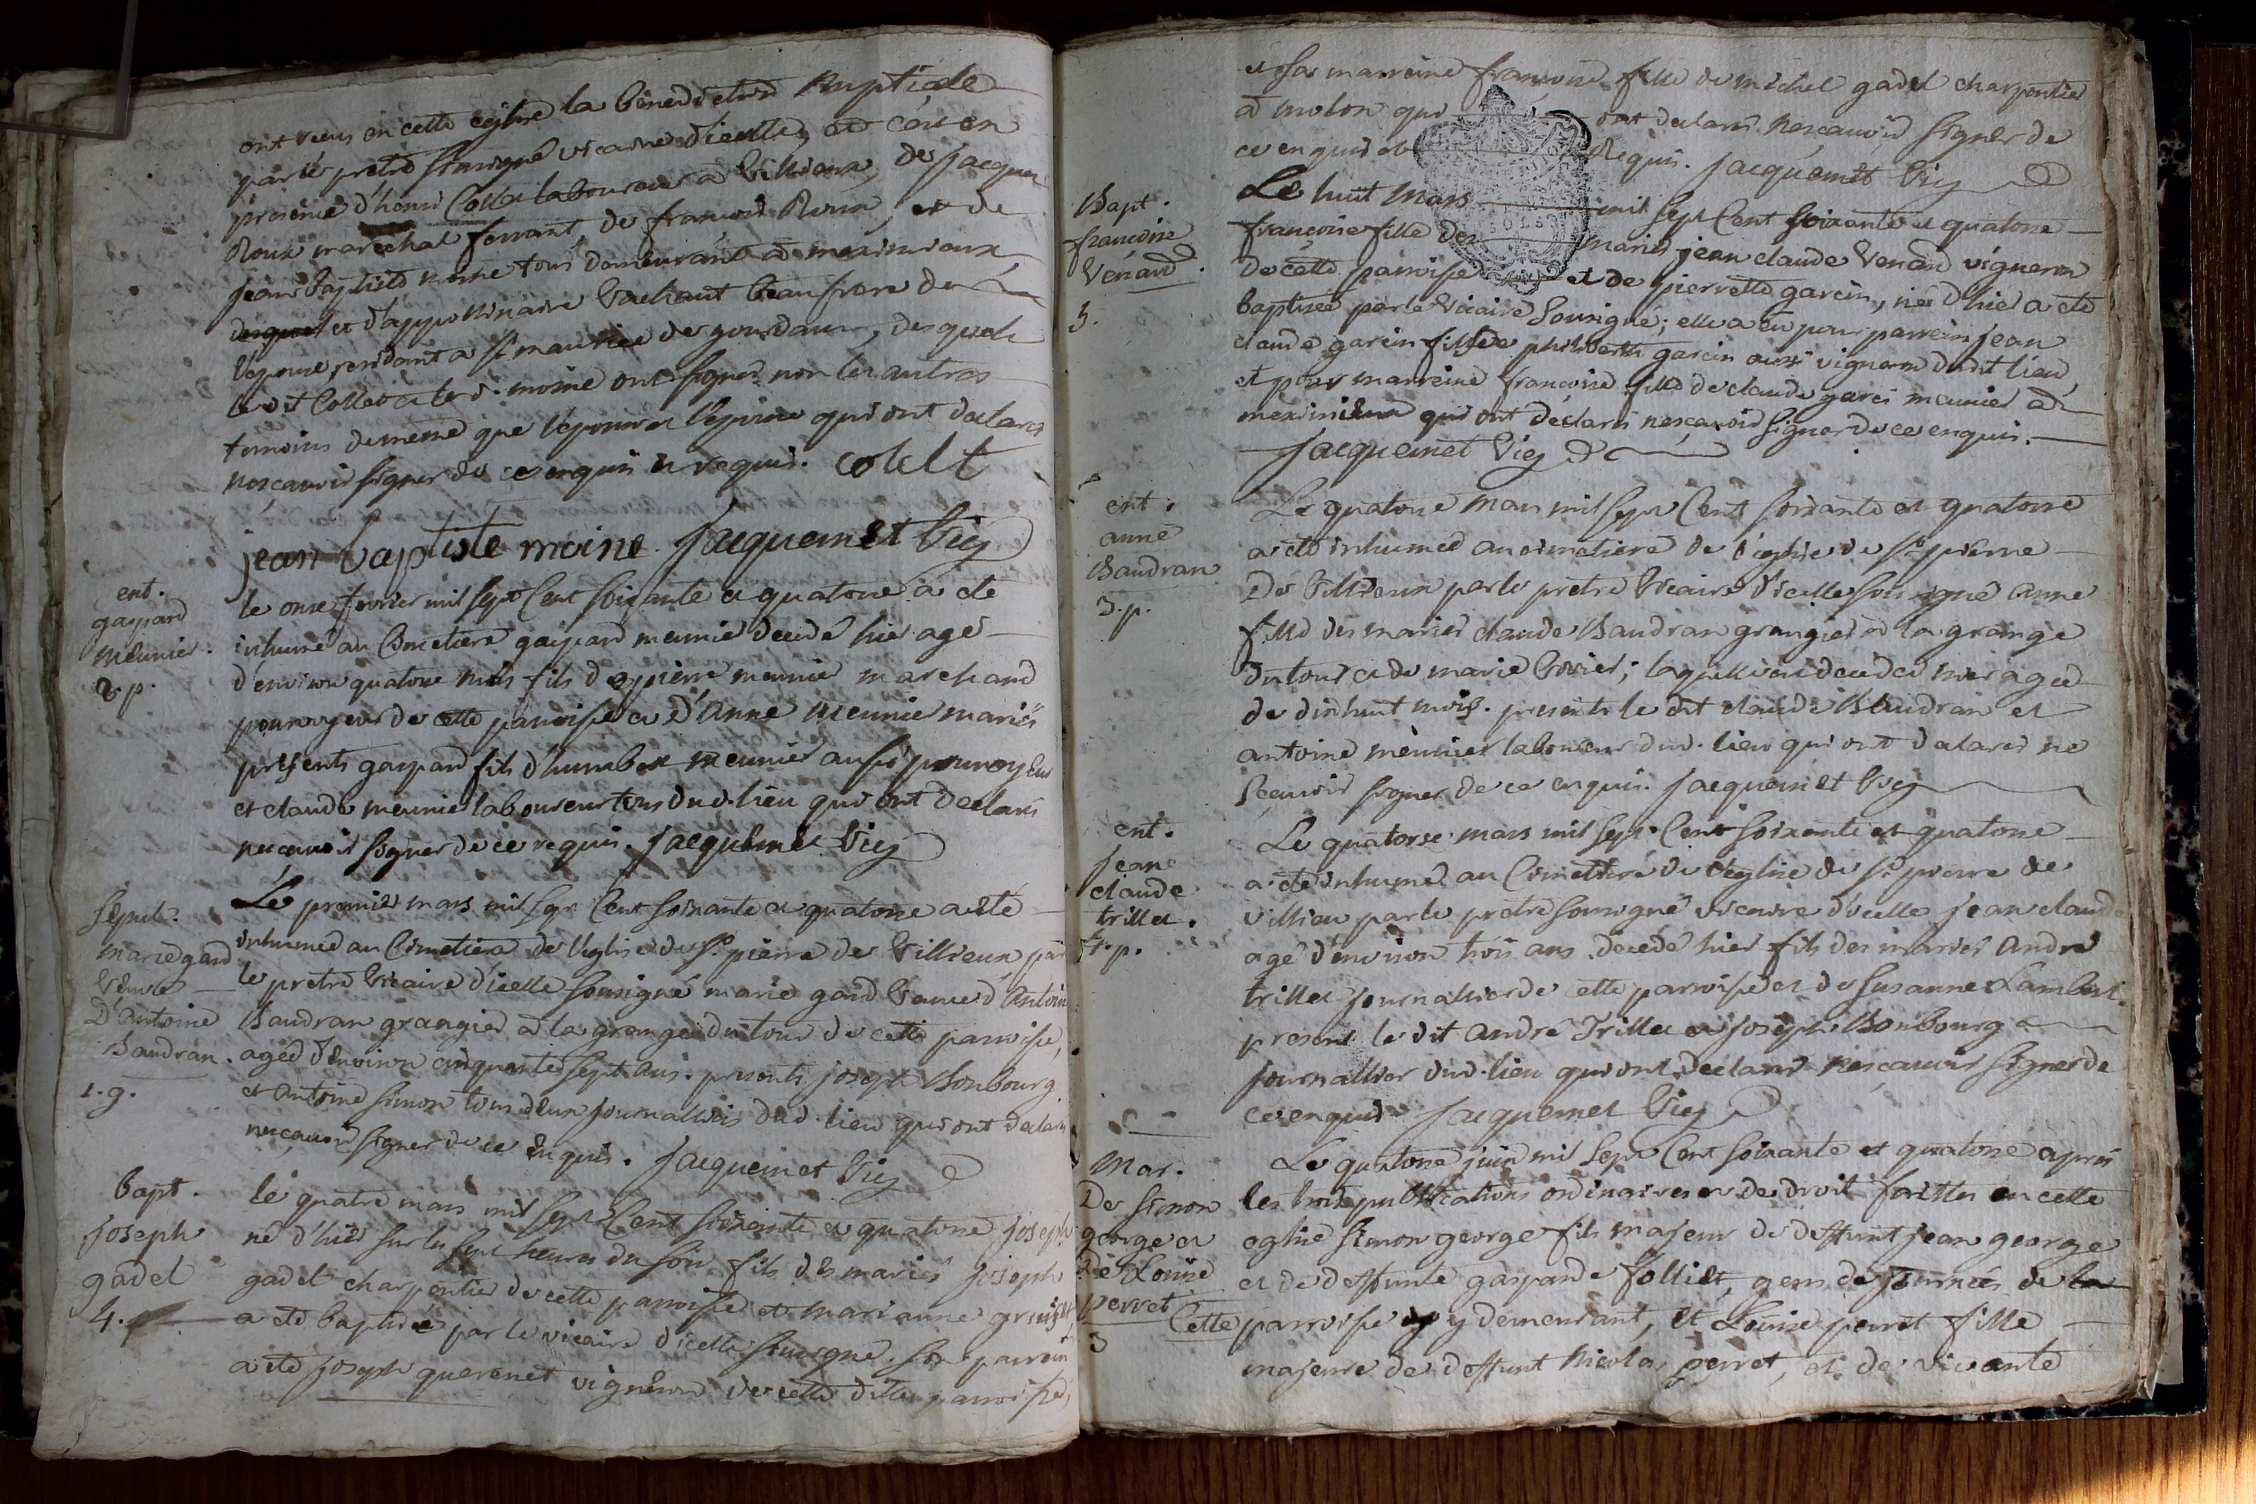 ont recus en cette église la bénédiction nuptiale
par le pretre soussigné vicaire d'icelle, et ce en
présence d'henri Collet laboureur a Villieux, de jacques
Roux marechal ferrant, de francois Roux, et de
jean baptiste moine tous demeurants a meximieux
et d'appollinaire Vachaut beaufrere de
l'epouse, residant a st maurice de gourdans, desquels
le dit Collet et le d. moine ont signés non les autres
temoins de meme que l'epoux et l'epouse qui ont declarés
nescavoir signer de ce enquis et requis. colelt
jean baptiste moine. jacquemet vic
ent.
gaspard
meunier.
2. p.
le onze fevrier mil sept Cent soixante et quatorze a ete
inhumé au Cimetiere gaspard meunié decedé hier agé
d'environ quatorze mois fils de pierre meunié marchand
pourvoyeur de cette paroisse et d'Anne Meunié mariés
présents gaspard fils d'humbert meunier aussi pourvoyeur
et claude meunié laboureur tous dud. lieu qui ont declarés
nescavoir signer de ce requis. jacquemet vic
sépul.
marie gard
veuve
D'antoine
Baudran.
1. g.
Le premier mars mil sept Cent soixante et quatorze a eté
inhumée au Cimetiere de l'eglise de St. pierre de Villieux par
le pretre Vicaire d'icelle soussigné marie gard Veuve d'Antoine
Baudran grangier a la grange du tour de cette paroisse,
agée d'environ cinquante sept ans. présents joseph Bonbourg
et antoine simon tous deux journalliers dud. lieu qui ont declarés
nescavoir signer de ce enquis. jacquemet vic
bapt.
joseph
gadel
4.
le quatre mars mil sept Cent soixante et quatorze joseph
né d'hier sur les sept heures du soir fils des mariés joseph
gadel charpentier de cette paroisse et marianne
a eté baptisé par le vicaire d'icelle soussigné. son parrein
a eté joseph querenet vigneron de cette dite paroisse,
et sa marreine francoise fille de michel gadel charpentier
a molon qui ont declarés nescavoir signer de
ce enquis et Requis. jacquemet vic
Bapt.
francoise
Venard.
3.
Le huit Mars mil sept Cent soixante et quatorze
francoise fille des mariés jean claude Venard vigneron
de cette paroisse et de pierrette garcin, née d'hier a eté
baptisée par le Vicaire soussigné; elle a eu pour parrein jean
claude garcin fils de philibert garcin aussi vigneron dudit lieu
et pour marreine francoise fille de claude garci meunier a
meximieux qui ont déclarés nescavoir signer de ce enquis.
jacquemet vic
ent.
anne
Baudran
3. p.
Le quatorze mars mil sept Cent soixante et quatorze
a eté inhumée au cimetiere de l'eglise de St. pierre
De Villieux par le pretre Vicaire d'icelle soussigné Anne
fille des mariés claude Baudran grangier a la grange
du tour et de marie bovier; laquelle est decedée hier agée
de dixhuit mois. présents le dit claude Baudran et
antoine meunier laboureur dud. lieu qui ont declarés ne
scavoir signer de ce enquis. jacquemet vic
ent.
jean
claude
trillet.
4. p.
Le quatorse mars mil sept Cent soixante et quatorze
a eté inhumé au Cimettiere de l'eglise de St. pierre de
villieu par le pretre soussigné vicaire d'icelle jean claude
agé d'environ trois ans decedé hier fils des mariés André
trillet journallier de cette paroisse et de Susanne Lambert.
present le dit André Trillet et joseph Bonbourg
journallier dud. lieu qui ont declarés nescavoir signer de
ce enquis jacquemet vic
Mar.
De Simon
george et
de Louise
perret
3
Le quatorze juin mil sept Cent soixante et quatorze après
les trois publications ordinaires et de droit faittes en cette
eglise Simon george fils majeur de deffunt jean george
et de deffunte gasparde folliet, gens de journées de la
Cette parroisse y demeurant, et Louise perret fille
majeure de deffunt Nicolas perret, et de vivante